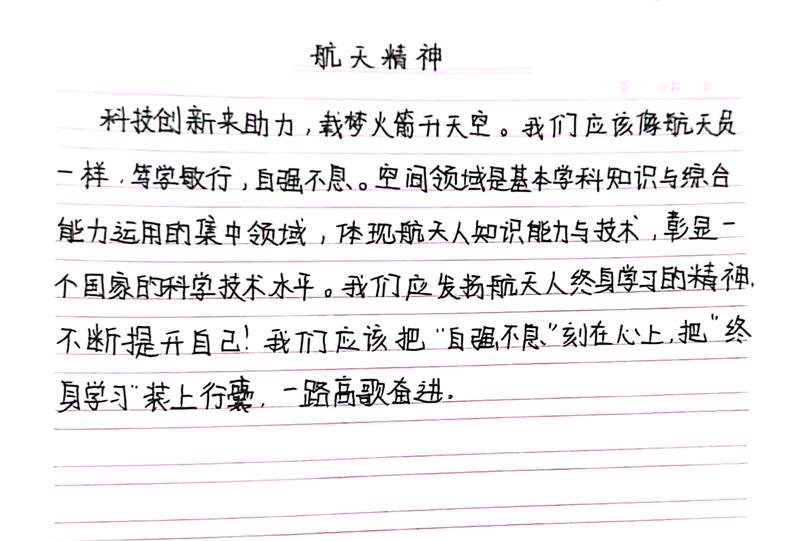 航天精神
科技创新来助力,载梦火箭升天空。我们应该像航天员
一样,笃学敏行,自强不息。空间领域是基本学科知识与综合
能力运用的集中领域,体现航天人知识能力与技术,彰显一
个国家的科学技术水平。我们应发扬航天人终身学习的精神,
不断提升自己!我们应该把“自强不息”刻在心上,把“终
身学习”装上行囊,一路高歌奋进。